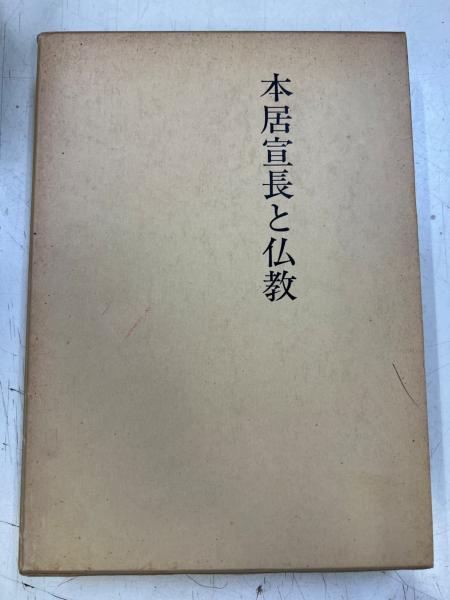 本居宣長と仏教